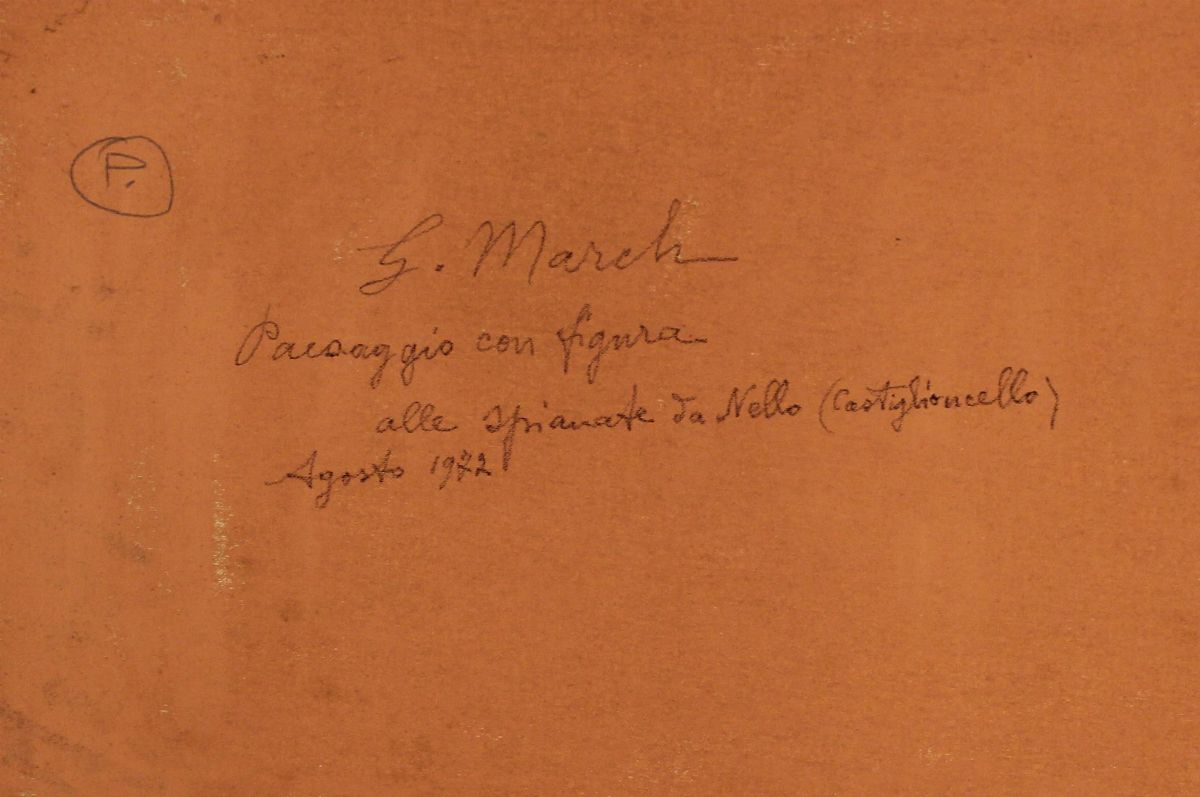 P.
G. March
Paesaggio con figura
alle Spianate da Nello (Castiglioncello)
Agosto 1972